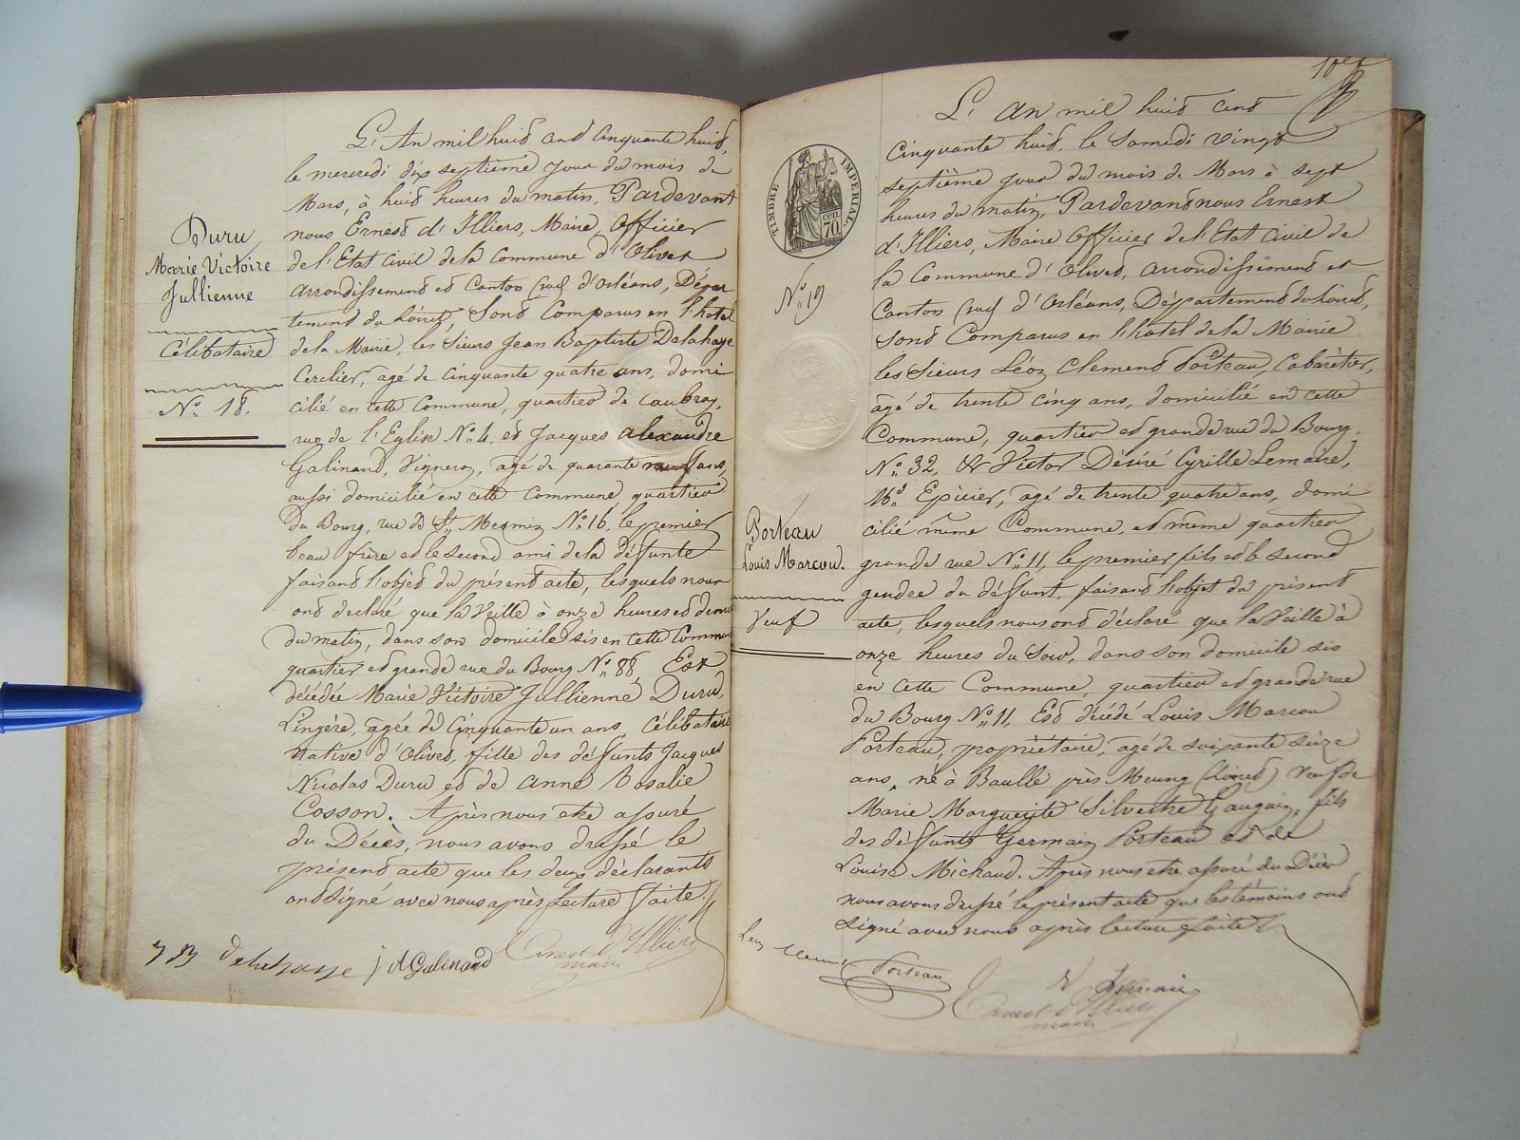 Duru
Marie Victoire
Jullienne
Célibataire
N° 18.
L'An mil huit cent cinquante huit,
le mercredi dix septième jour du mois de
Mars, à huit heures du matin, Pardevant
nous Ernest d'Illiers, Maire, Officier
de l'Etat Civil de la Commune d'Olivet
arrondissement et Canton (sud) d'Orléans, Dépar
tement du Loiret, Sont Comparus en l'hotel
de la Mairie, les Sieurs Jean Baptiste Delahaye
Cerclier, agé de cinquante quatre ans, domi
cilié en cette Commune, quartier de Caubray,
rue de l'Eglise N° 4, et Jacques alexandre
Galinand, Vigneron, agé de quarante neuf ans,
aussi domicilié en cette Commune, quartier
du Bourg, rue de St. Mesmin N° 16, le premier
beau frère et le second ami de la défunte
faisant l'objet du présent acte, lesquels nous
ont déclaré que la Veille à onze heures et demie
du matin, dans son domicile sis en cette Commune
quartier et grande rue du Bourg N° 88, Est
décédée Marie Victoire Jullienne Duru,
Lingère, agée de Cinquante un ans, Célibataire
native d'Olivet, fille des défunts Jacques
Nicolas Duru et de Anne Rosalie
Cosson. Après nous etre assuré
du Décès, nous avons dressé le
présent acte que les deux déclarants
ont signé avec nous après lecture faite.
Delahaye j A Galinand Ernest d'Illiers
maire
TIMBRE IMPERIAL
70
N° 19
Porteau
Louis Marcou.
Veuf
L'An mil huit cent
Cinquante huit, le Samedi vingt
septième jour du mois de Mars à sept
heures du matin, Pardevant nous Ernest
d'Illiers, Maire Officier de l'Etat Civil de
la Commune d'Olivet, arrondissement et
Canton (sud) d'Orléans, Département du Loiret,
Sont Comparus en l'hotel de la Mairie
les Sieurs Léon Clement Porteau, Cabaretier,
âgé de trente cinq ans, domicilié en cette
Commune, quartier et grande rue du Bourg
N° 32, & Victor Désiré Cyrille Lemaire,
Md. Epicier, agé de trente quatre ans, domi
cilié même Commune, et même quartier
grande rue N° 11, le premier fils et le second
gendre du défunt, faisant l'objet du présent
acte, lesquels nous ont déclaré que la Veille à
onze heures du Soir, dans son domicile sis
en cette Commune, quartier et grande rue
du Bourg N° 11, Est décédé Louis Marcou
Porteau, propriétaire, agé de soixante seize
ans, né à Baulle près Meung (Loiret) Veuf de
Marie Marguerite Silvestre Gaugain, fils
des défunts Germain Porteau et de
Louise Michaud. Après nous etre assuré du Décès
nous avons dressé le présent acte que les témoins ont
signé avec nous après lecture faite
Porteau
V Lemaire
Ernest d'Illiers
maire